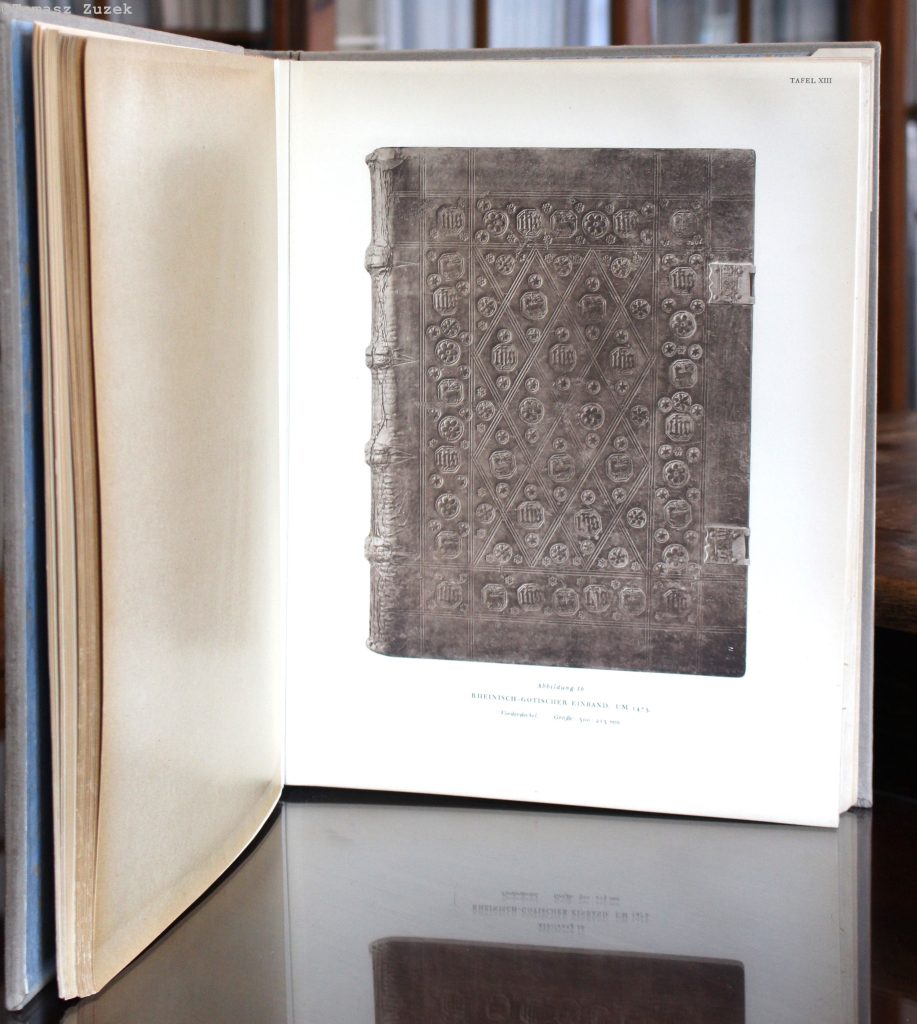 ©Tomasz Zuzek
TAFEL XIII
Abbildung 16
RHEINISCH-GOTISCHER EINBAND. UM 1475
Vorderdeckel Größe